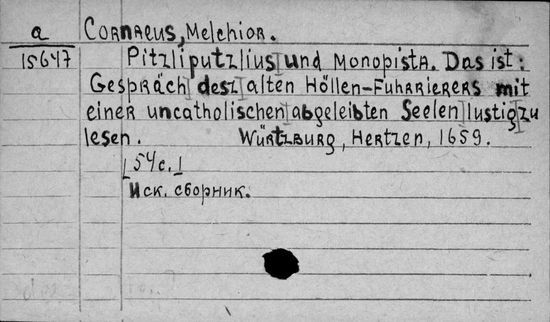 a
15647
Cornaeus, Melchior.
Pitzliputzlius|und Monopista. Das ist:
Gespräch|desz|alten Höllen-Fuhrrierers mit
einer uncatholischen|abgeleibten Seelen|lustig|zu
lesen. Würtzburg, Hertzen, 1659.
|54c.|
Иск. сборник.